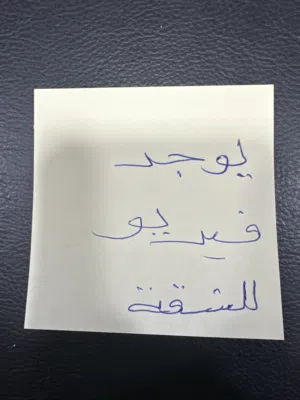 يوجد
فيديو
للشقة